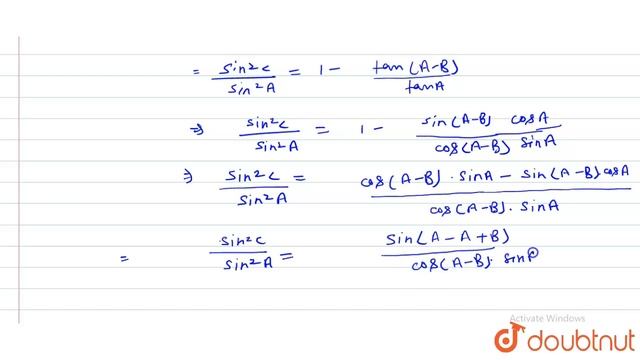 = sin²c/sin²A = 1 - tan(A-B)/tanA
⇒ sin²c/sin²A = 1 - sin(A-B) cosA/cos(A-B) sinA
⇒ sin²c/sin²A = cos(A-B)·sinA - sin(A-B) cosA/cos(A-B)·sinA
= sin²c/sin²A = sin(A-A+B)/cos(A-B)·sinA
Activate Windows
doubtnut